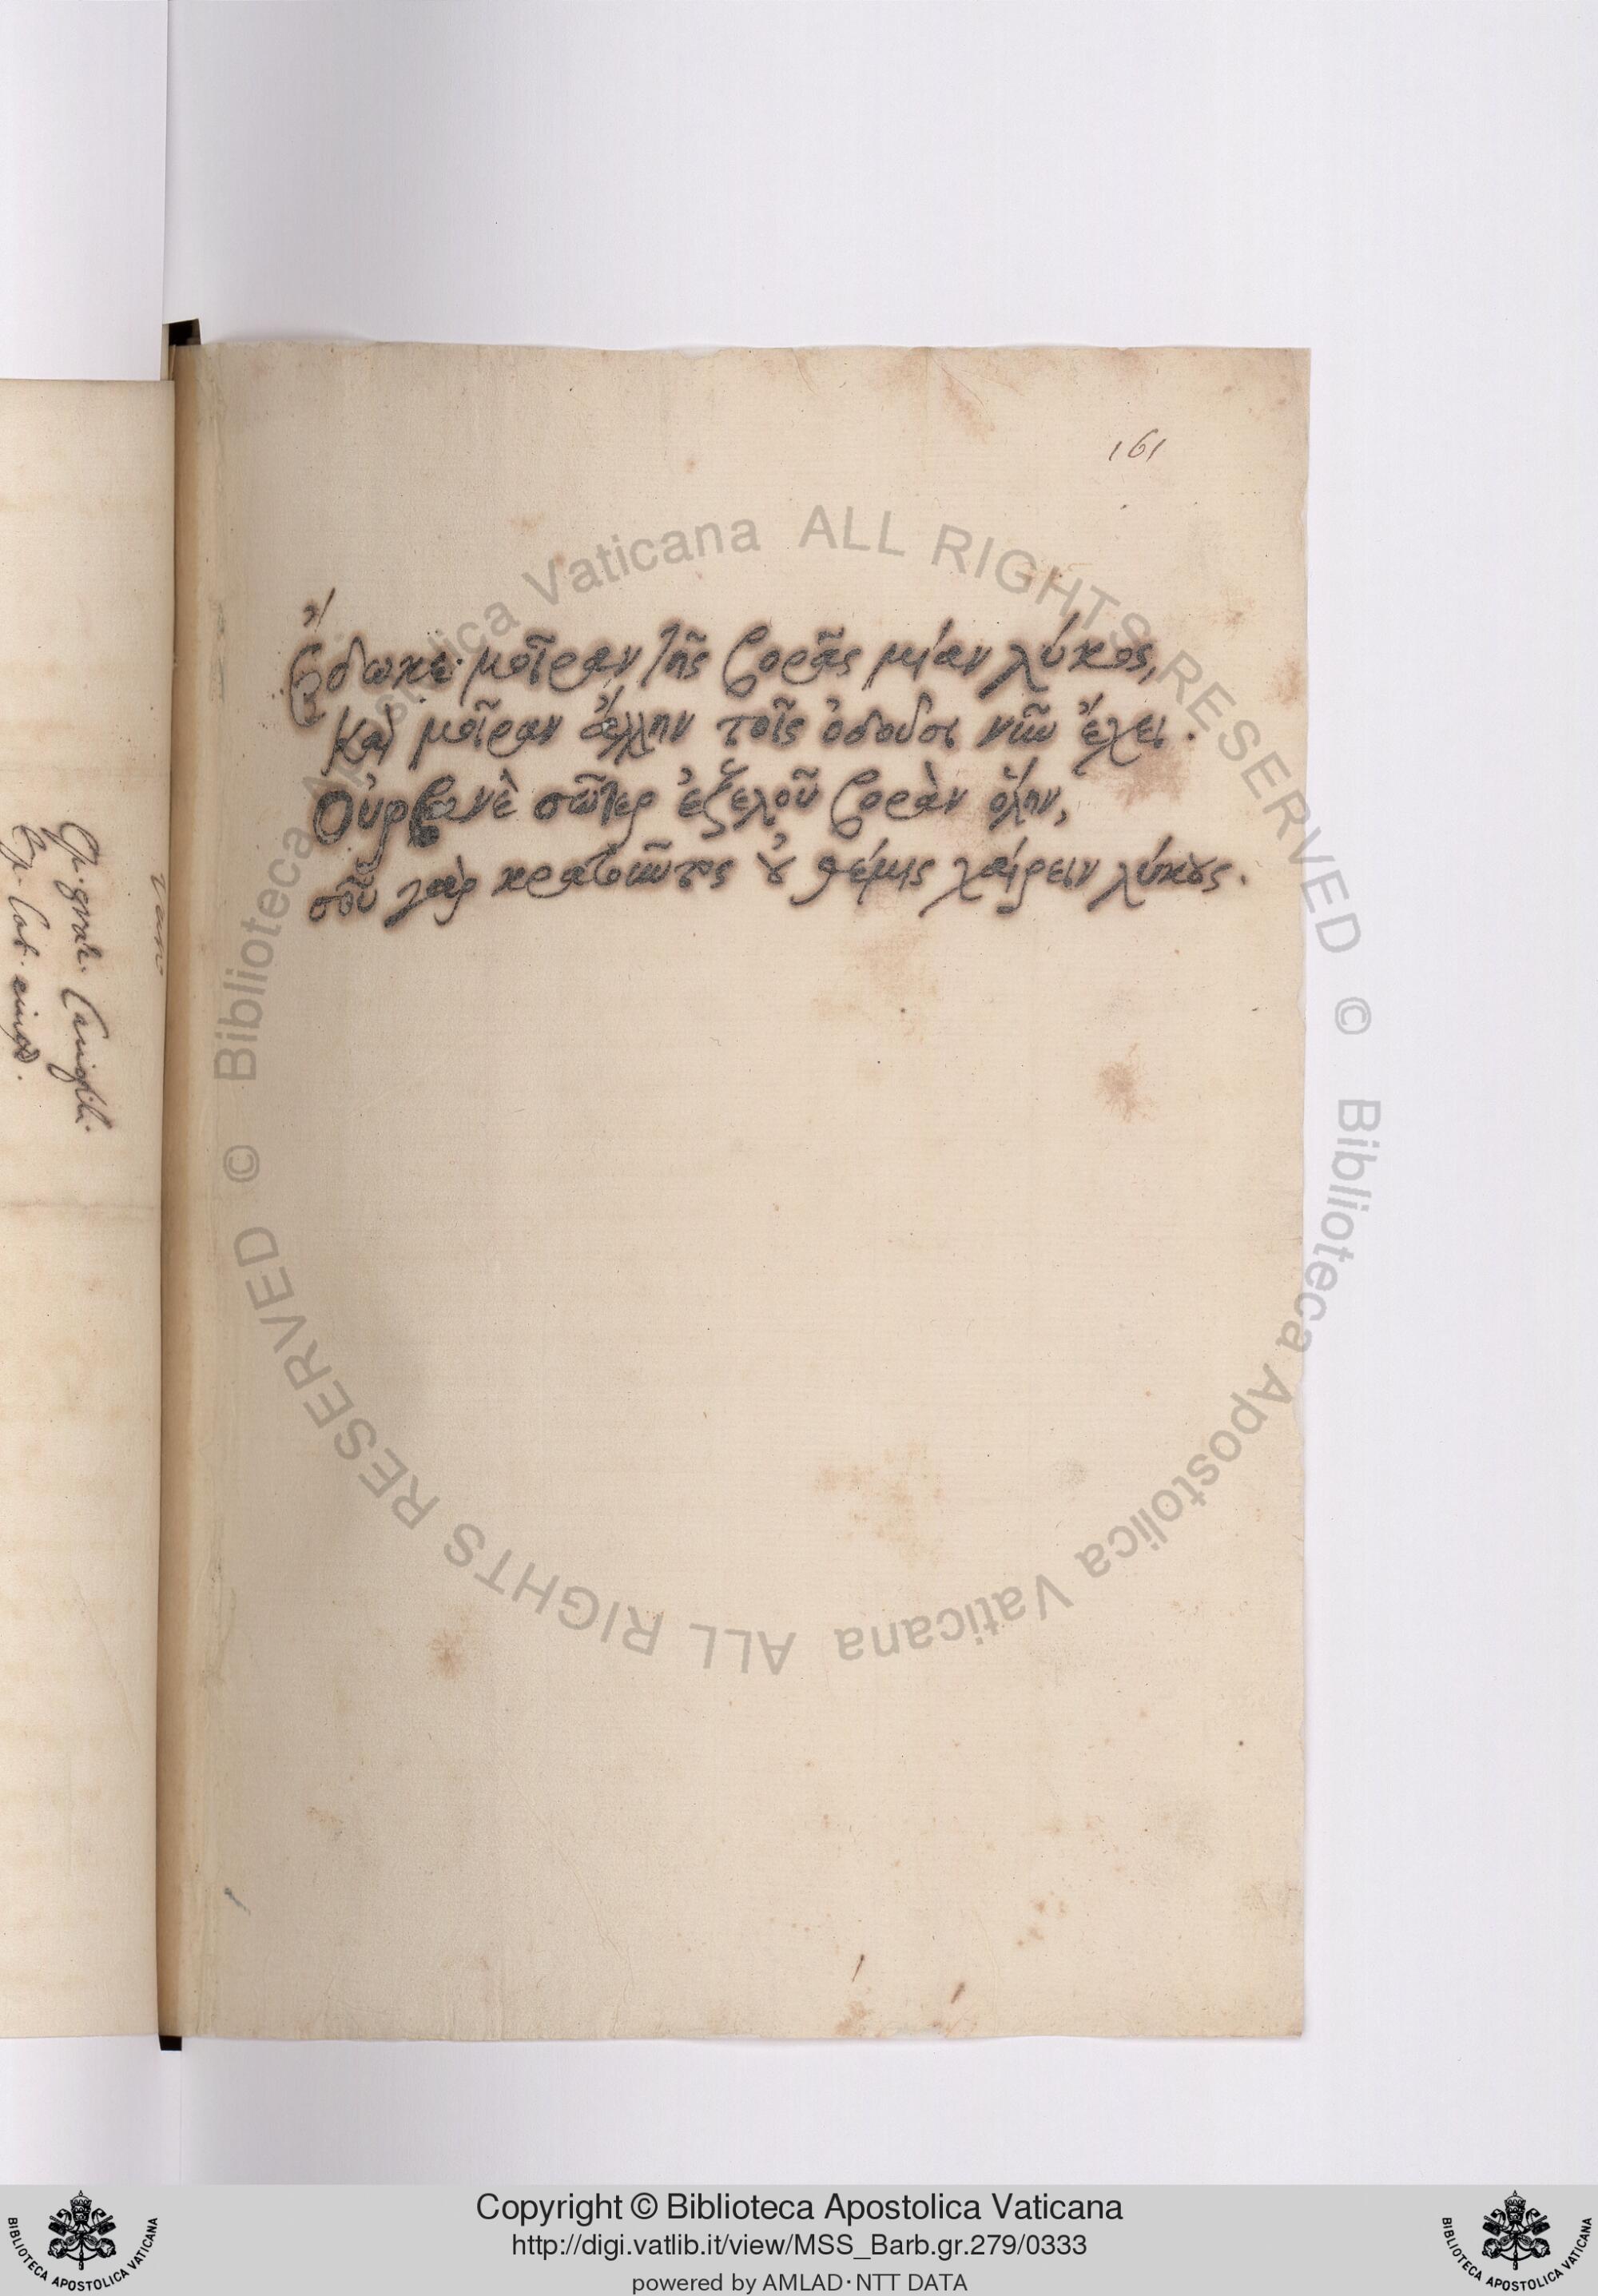 161
Ἔδωκε μοῖραν τῆς βορᾶς μίαν λύκος,
Καὶ μοῖραν ἄλλην τοῖς ὀδοῦσι νῦν ἔχει.
Οὐρβανὲ σῶτερ ἐξελοῦ βορὰν ὅλην,
σοῦ γὰρ κρατοῦντος οὐ θέμις χαίρειν λύκους.
© Biblioteca Apostolica Vaticana ALL RIGHTS RESERVED
© Biblioteca Apostolica Vaticana ALL RIGHTS RESERVED
Copyright © Biblioteca Apostolica Vaticana
http://digi.vatlib.it/view/MSS_Barb.gr.279/0333
powered by AMLAD·NTT DATA
BIBLIOTECA APOSTOLICA VATICANA
BIBLIOTECA APOSTOLICA VATICANA